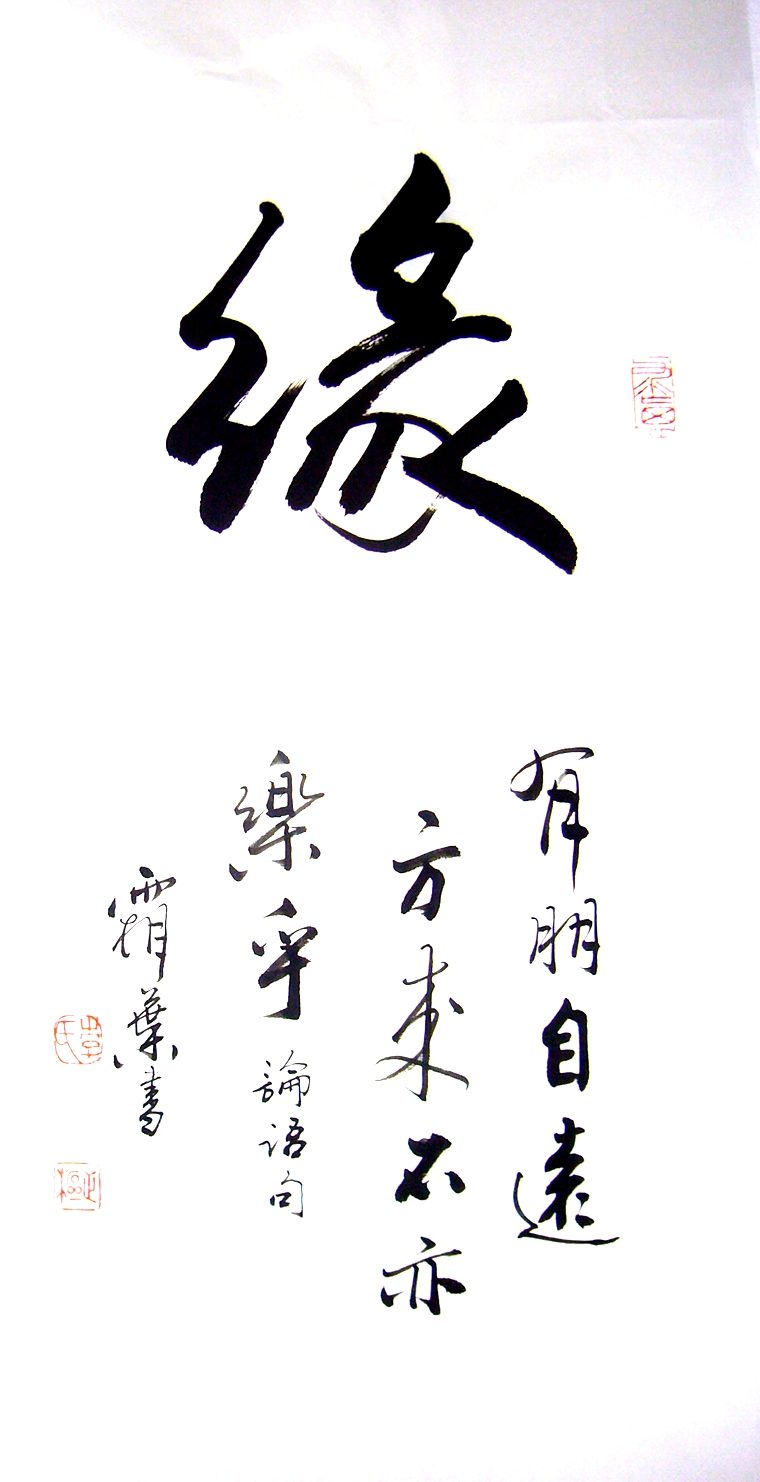 緣
有朋自遠
方来不亦
樂乎 論语句
霜葉書